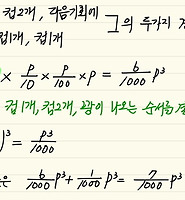 컵2개, 다음기회에
그의 두가지 경
컵1개, 컵1개
× p/10 × p/100 × p = 6/1000 p³
컵1개, 컵2개, 꽝이 나오는 순서를 정
)³ = p³/1000
은 6/1000 p³ + 1/1000 p³ = 7/1000 p³